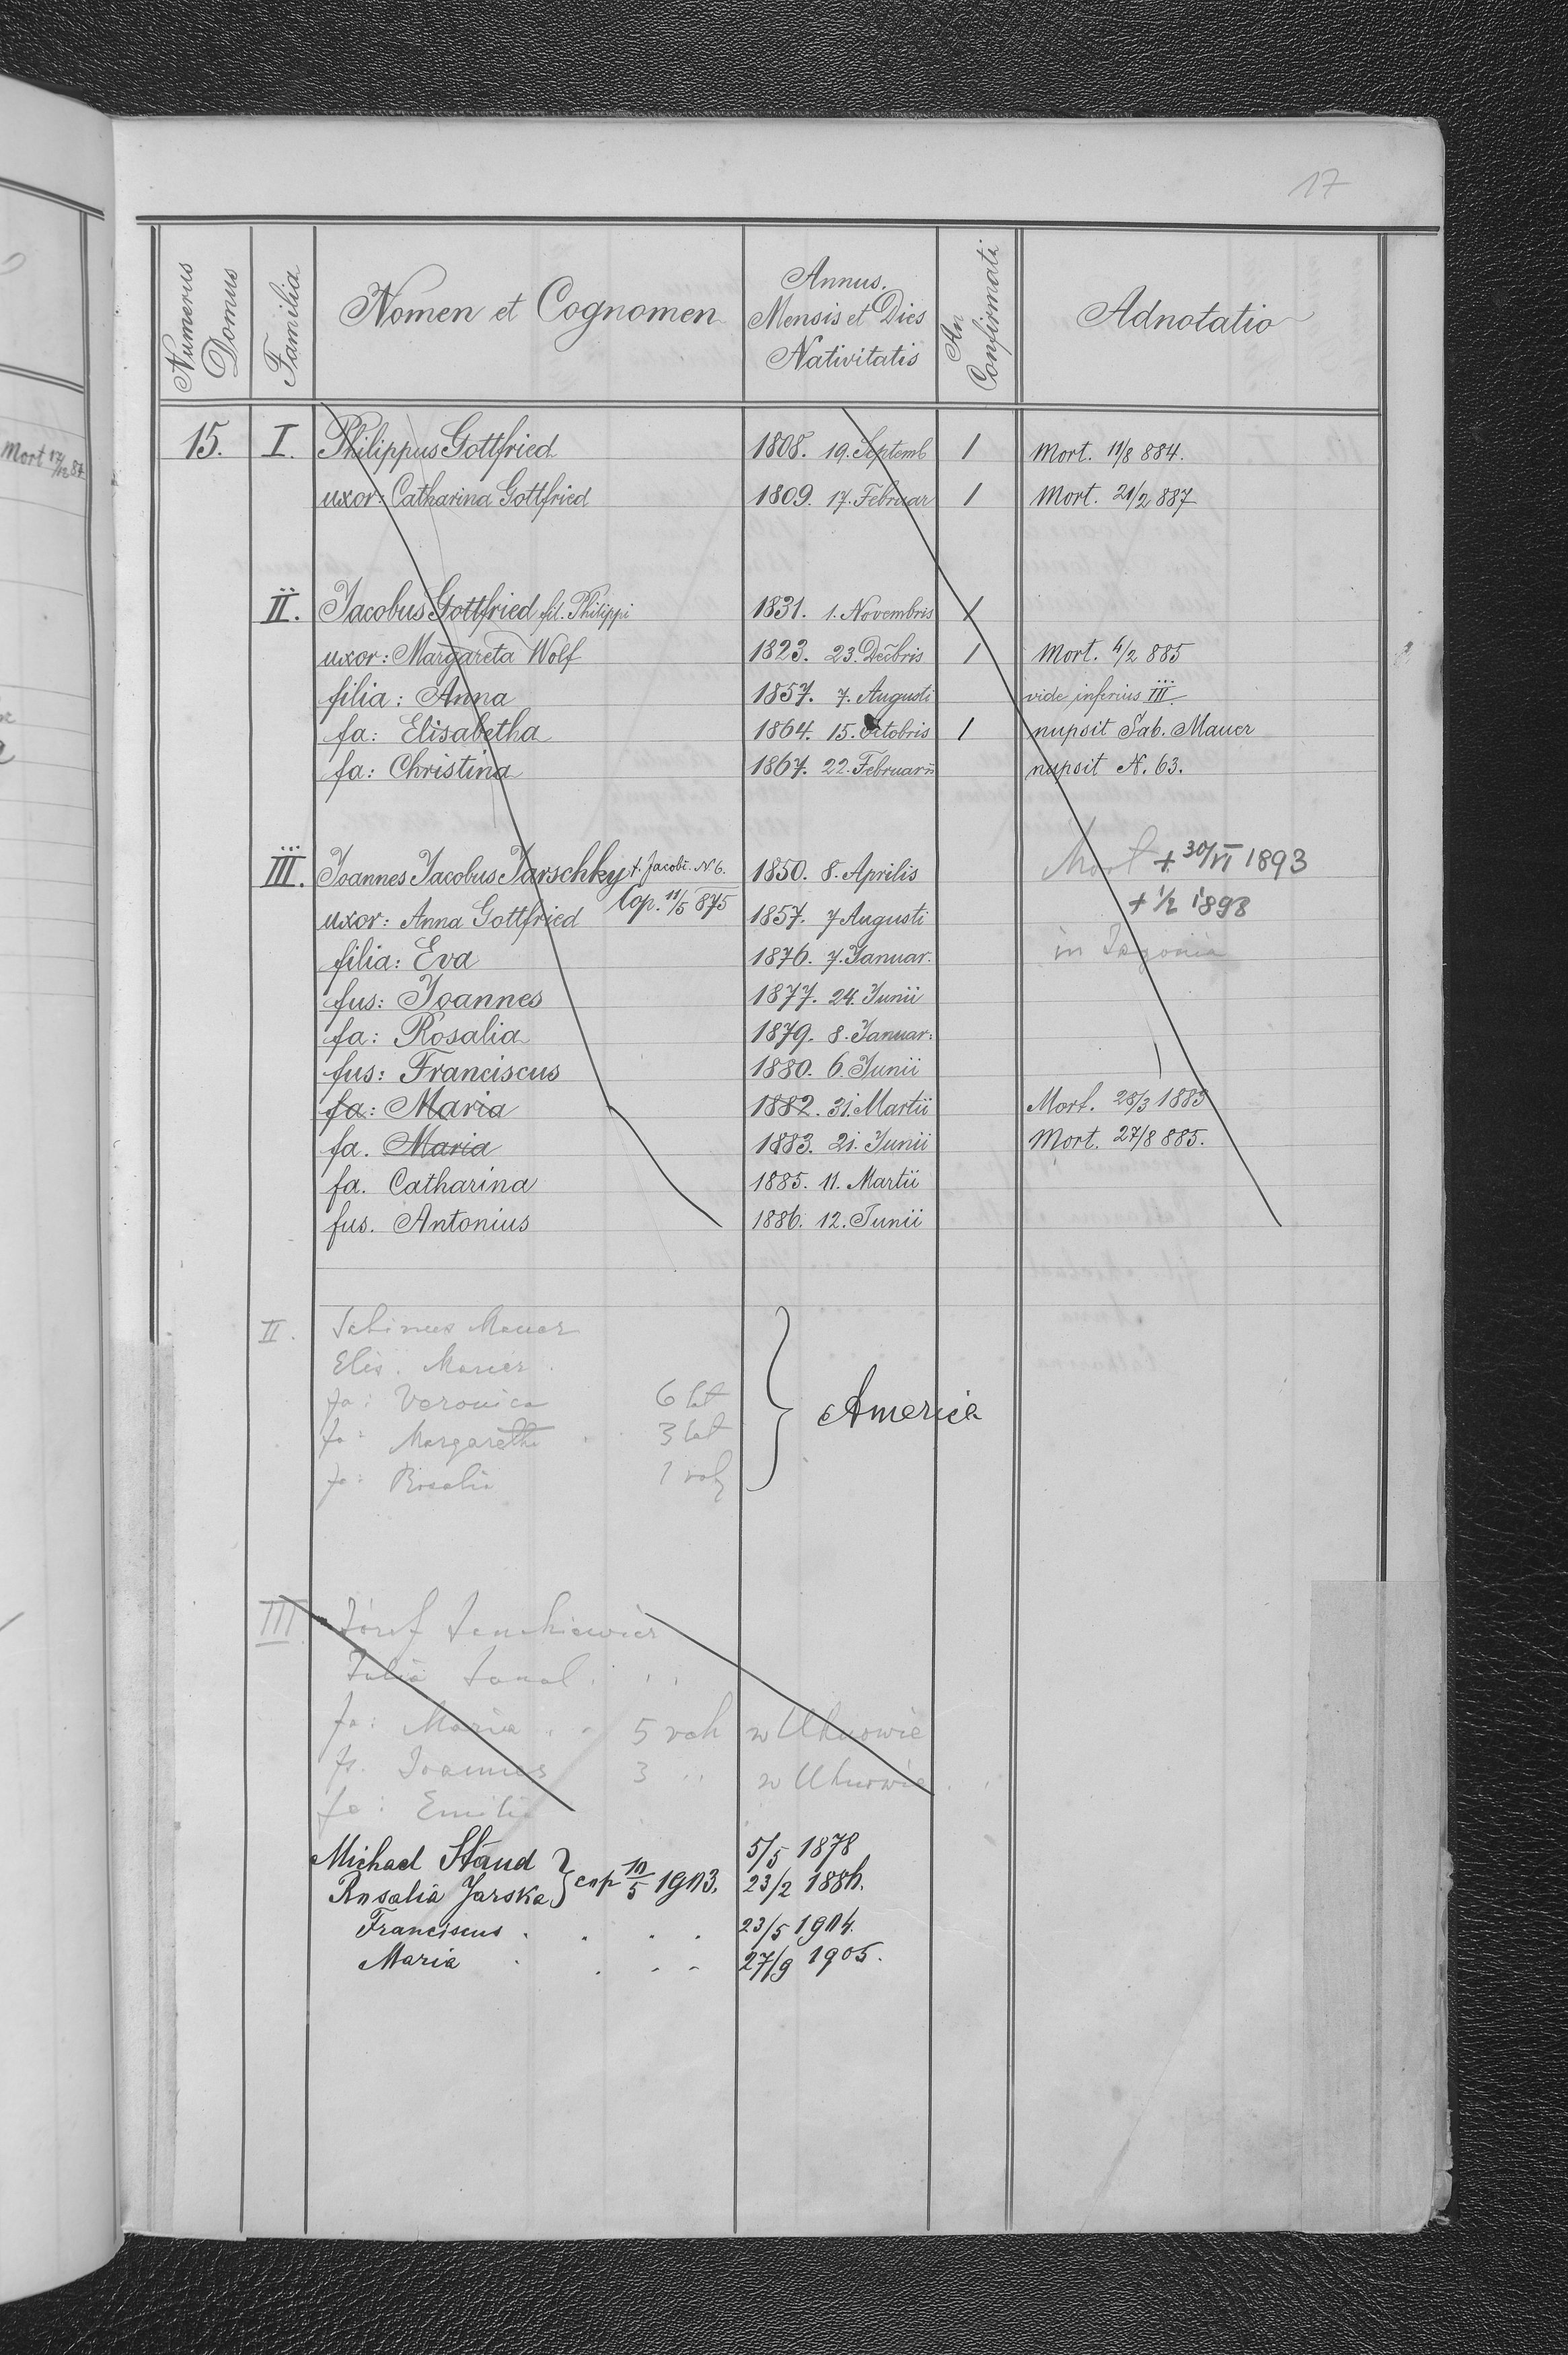 17
Numerus Domus
Familia
Nomen et Cognomen
Annus. Mensis et Dies Nativitatis
An Confirmati
Adnotatio
Mort 17/12 87
15. I. Philippus Gottfried 1808. 19. Septemb 1 Mort. 11/8 884.
uxor: Catharina Gottfried 1809. 17. Februar 1 Mort. 21/2 887
II. Jacobus Gottfried fil. Philippi 1831. 1. Novembris 1
uxor: Margareta Wolf 1823. 23. Decbris 1 Mort. 4/2 885
filia: Anna 1857. 7. Augusti vide inferius III.
fa: Elisabetha 1864. 15. Octobris 1 nupsit Sab. Mauer
fa: Christina 1867. 22. Februarii nupsit N. 63.
III. Joannes Jacobus Jarschky f. Jacobi. N 6. 1850. 8. Aprilis Mort + 30/VI 1893
Cop. 11/5 875
uxor: Anna Gottfried 1857. 7 Augusti + 1/2 1893
filia: Eva 1876. 7. Januar. in
fus: Joannes 1877. 24. Junii
fa: Rosalia 1879. 8. Januar:
fus: Franciscus 1880. 6. Junii
fa: Maria 1882. 31. Martii Mort. 28/3 1883
fa. Maria 1883. 21. Junii Mort. 27/8 885.
fa. Catharina 1885. 11. Martii
fus. Antonius 1886. 12. Junii
II. Sabinus Mauer
Elis. Mauer
fa: Veronica 6 lat
fa: Margaretha 3 lat
fa: Rosalia 1 rok
America
III Józef
Julia
fa: Maria 5 rok w Uhnowie
fs. Joannes 3 " w Uhnowie
fa: Emilia
Michael Staud 5/5 1878
Rosalia Jarska cop 10/5 1903. 23/2 1886.
Franciscus 23/5 1904.
Maria 27/9 1905.